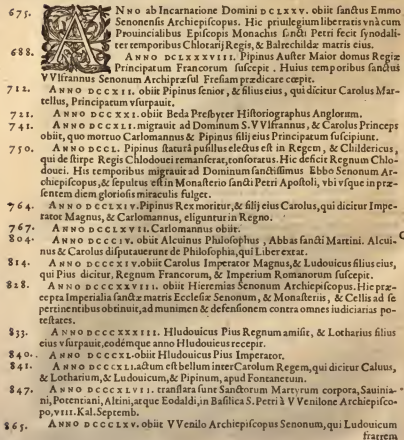 675. ANNO ab Incarnatione Domini DCLXXV. obiit sanctus Emmo
Senonensis Archiepiscopus. Hic priuilegium libertatis vnà cum
Prouincialibus Episcopis Monachis sancti Petri fecit synodali-
ter temporibus Chlotarij Regis, & Balrechildæ matris eius.
688. ANNO DCLXXXVIII. Pipinus Auster Maior domus Regiæ
Principatum Francorum suscepit. Huius temporibus sanctus
VVlfrannus Senonum Archipræsul Fresiam prædicare cœpit.
712. ANNO DCCXII. obiit Pipinus senior, & filius eius, qui dicitur Carolus Mar-
tellus, Principatum vsurpauit.
721. ANNO DCCXXI. obiit Beda Presbyter Historiographus Anglorum.
741. ANNO DCCXLI. migrauit ad Dominum S. VVlfrannus, & Carolus Princeps
obiit, quo mortuo Carlomannus & Pipinus filij eius Principatum suscipiunt.
750. ANNO DCCL. Pipinus staturâ pusillus electus est in Regem, & Childericus,
qui de stirpe Regis Chlodouei remanserat, tonsoratus. Hic deficit Regnum Chlo-
douei. His temporibus migrauit ad Dominum sanctissimus Ebbo Senonum Ar-
chiepiscopus, & sepultus est in Monasterio sancti Petri Apostoli, vbi vsque in præ-
sentem diem gloriosis miraculis fulget.
764. ANNO DCCLXIV. Pipinus Rex moritur, & filij eius Carolus, qui dicitur Impe-
rator Magnus, & Carlomannus, eliguntur in Regno.
767. ANNO DCCLXVII. Carlomannus obiit.
804. ANNO DCCCIV. obiit Alcuinus Philosophus, Abbas sancti Martini. Alcui- C
nus & Carolus disputauerunt de Philosophia, qui Liber extat.
814. ANNO DCCCXIV. obiit Carolus Imperator Magnus, & Ludouicus filius eius,
qui Pius dicitur, Regnum Francorum, & Imperium Romanorum suscepit.
828. ANNO DCCCXXVIII. obiit Hieremias Senonum Archiepiscopus. Hic præ-
cepta Imperialia sanctæ matris Ecclesiæ Senonum, & Monasteriis, & Cellis ad se
pertinentibus obtinuit, ad munimen & defensionem contra omnes iudiciarias po-
testates.
833. ANNO DCCCXXXIII. Hludouicus Pius Regnum amisit, & Lotharius filius
eius vsurpauit, eodémque anno Hludouicus recepit.
840. ANNO DCCCXL. obiit Hludouicus Pius Imperator.
841. ANNO DCCCXLI. actum est bellum inter Carolum Regem, qui dicitur Caluus,
& Lotharium, & Ludouicum, & Pipinum, apud Fontanetum.
847. ANNO DCCCXLVII. translata sunt Sanctorum Martyrum corpora, Sauinia-
ni, Potentiani, Altini, atque Eodaldi, in Basilica S. Petri à VVenilone Archiepisco-
po, VIII. Kal. Septemb.
865. ANNO DCCCLXV. obiit VVenilo Archiepiscopus Senonum, qui Ludouicum
fratrem